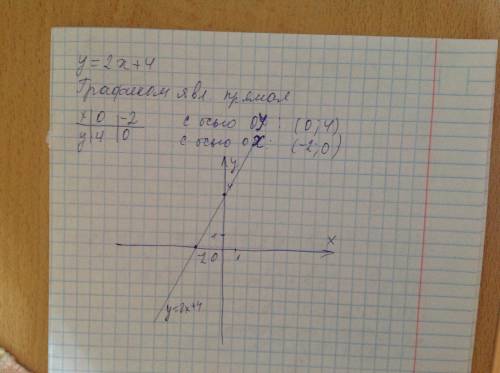 y=2x+4
Графиком явл. прямая
x 0 -2
y 4 0
с осью OY: (0;4)
с осью OX: (-2;0)
y
4
1
x
-2 0 1
y=2x+4